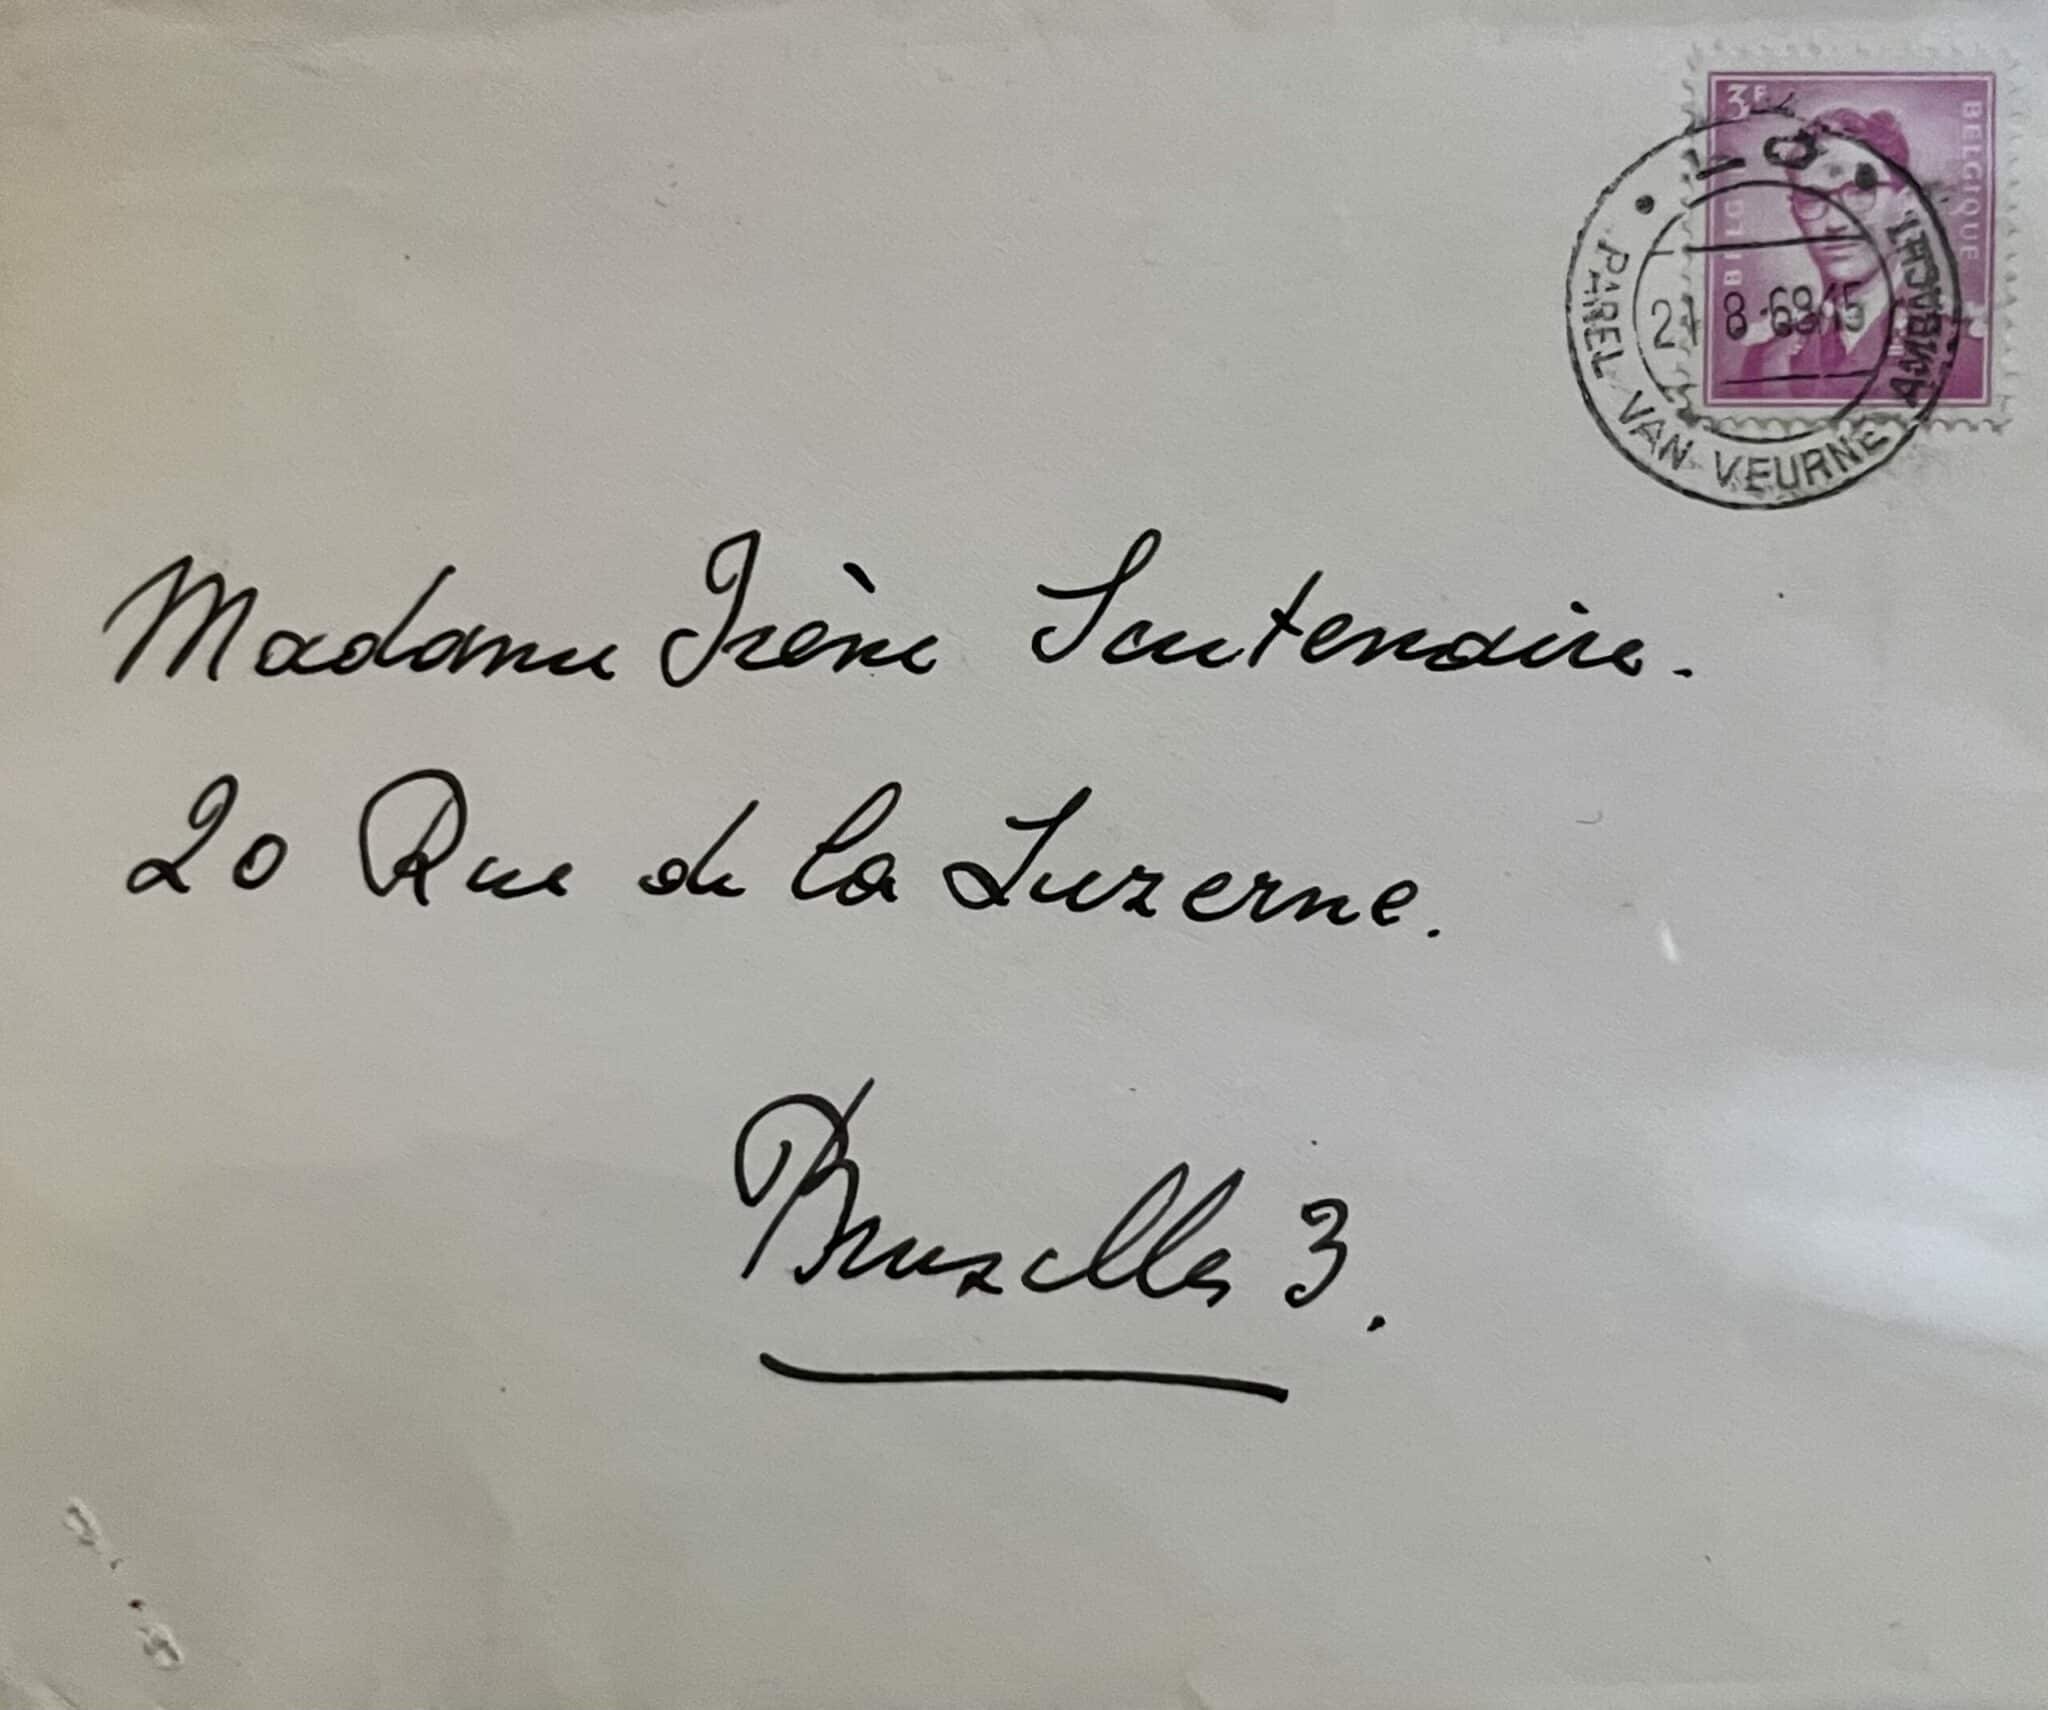 3F
BELGIQUE
BELGIE
LO
PAREL VAN VEURNE AMBACHT
8-68
Madame Irène Scutenaire.
20 Rue de la Luzerne.
Bruxelles 3.